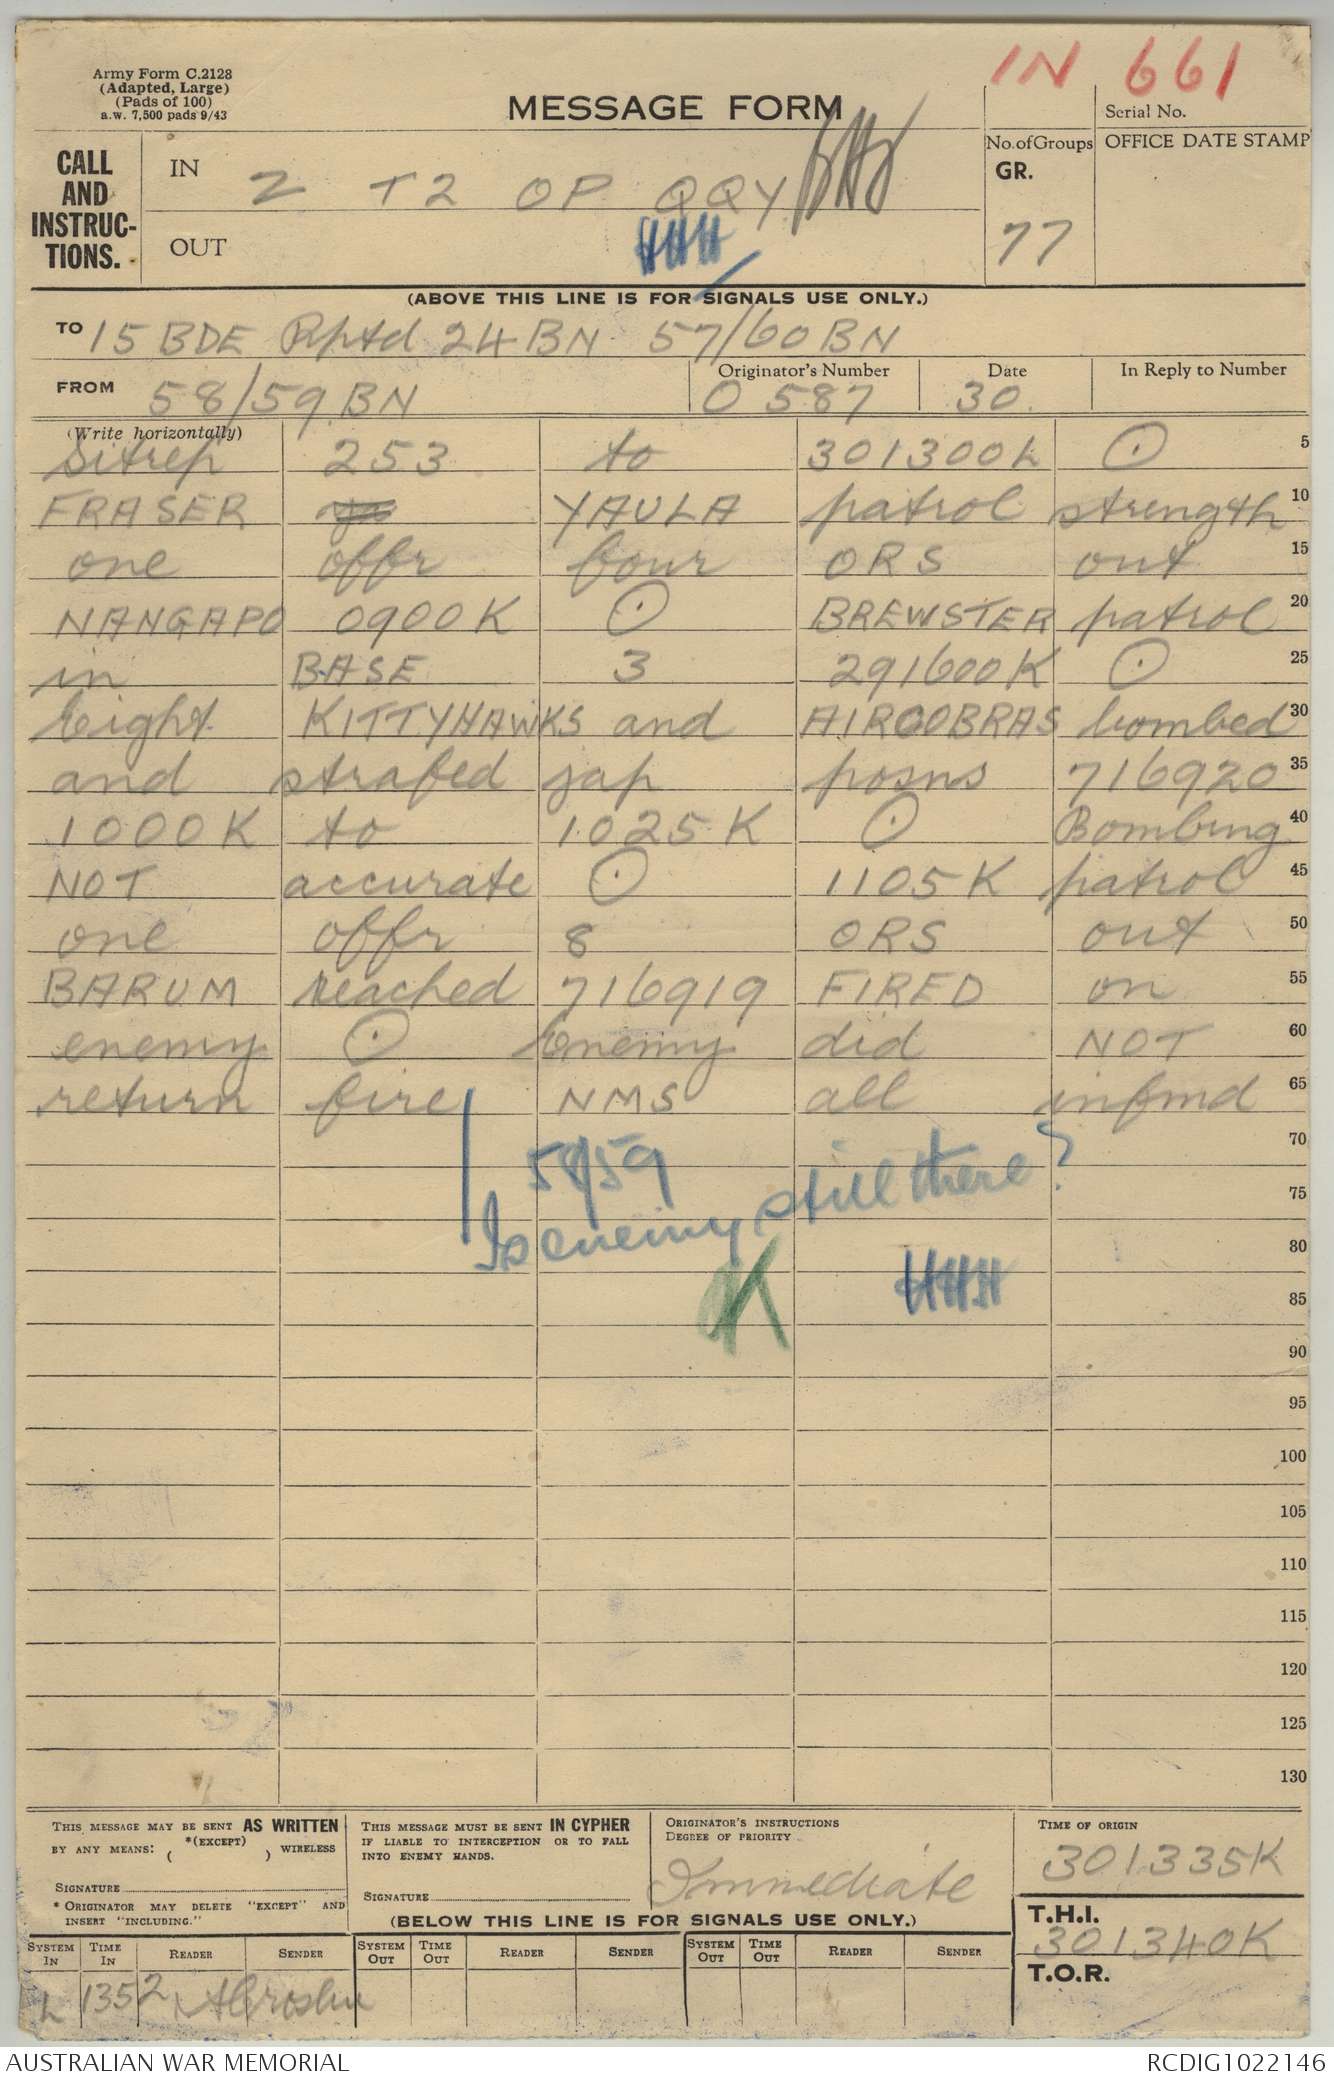 Army Form C.2128
(Adapted, Large)
(Pads of 100)
a.w. 7,500 pads 9/43
MESSAGE FORM
IN 661
Serial No.
CALL
AND
INSTRUC-
TIONS.
IN Z T2 OP QQY
OUT
No. of Groups
GR.
77
OFFICE DATE STAMP
HHH
(ABOVE THIS LINE IS FOR SIGNALS USE ONLY.)
TO 15 BDE Rptd 24 BN 57/60 BN
FROM 58/59 BN
Originator's Number
O 587
Date
30
In Reply to Number
(Write horizontally)
Sitrep 253 to 301300L ⊙ 5
FRASER YAULA patrol strength 10
one offr four ORS out 15
NANGAPO 0900K ⊙ BREWSTER patrol 20
in BASE 3 291600K ⊙ 25
Eight KITTYHAWKS and AIRCOBRAS bombed 30
and strafed jap posns 716920 35
1000K to 1025K ⊙ Bombing 40
NOT accurate ⊙ 1105K patrol 45
one offr 8 ORS out 50
BARUM reached 716919 FIRED on 55
enemy ⊙ Enemy did NOT 60
return fire NMS all infmd 65
70
58/59
Is enemy still there?
75
80
HHH
K
85
90
95
100
105
110
115
120
125
130
THIS MESSAGE MAY BE SENT AS WRITTEN
BY ANY MEANS: *(EXCEPT) ( ) WIRELESS
SIGNATURE
* ORIGINATOR MAY DELETE "EXCEPT" AND
INSERT "INCLUDING."
THIS MESSAGE MUST BE SENT IN CYPHER
IF LIABLE TO INTERCEPTION OR TO FALL
INTO ENEMY HANDS.
SIGNATURE
ORIGINATOR'S INSTRUCTIONS
DEGREE OF PRIORITY
Immediate
TIME OF ORIGIN
301335K
(BELOW THIS LINE IS FOR SIGNALS USE ONLY.)
T.H.I.
301340K
T.O.R.
SYSTEM IN TIME IN READER SENDER SYSTEM OUT TIME OUT READER SENDER SYSTEM OUT TIME OUT READER SENDER
L 1352
AUSTRALIAN WAR MEMORIAL
RCDIG1022146